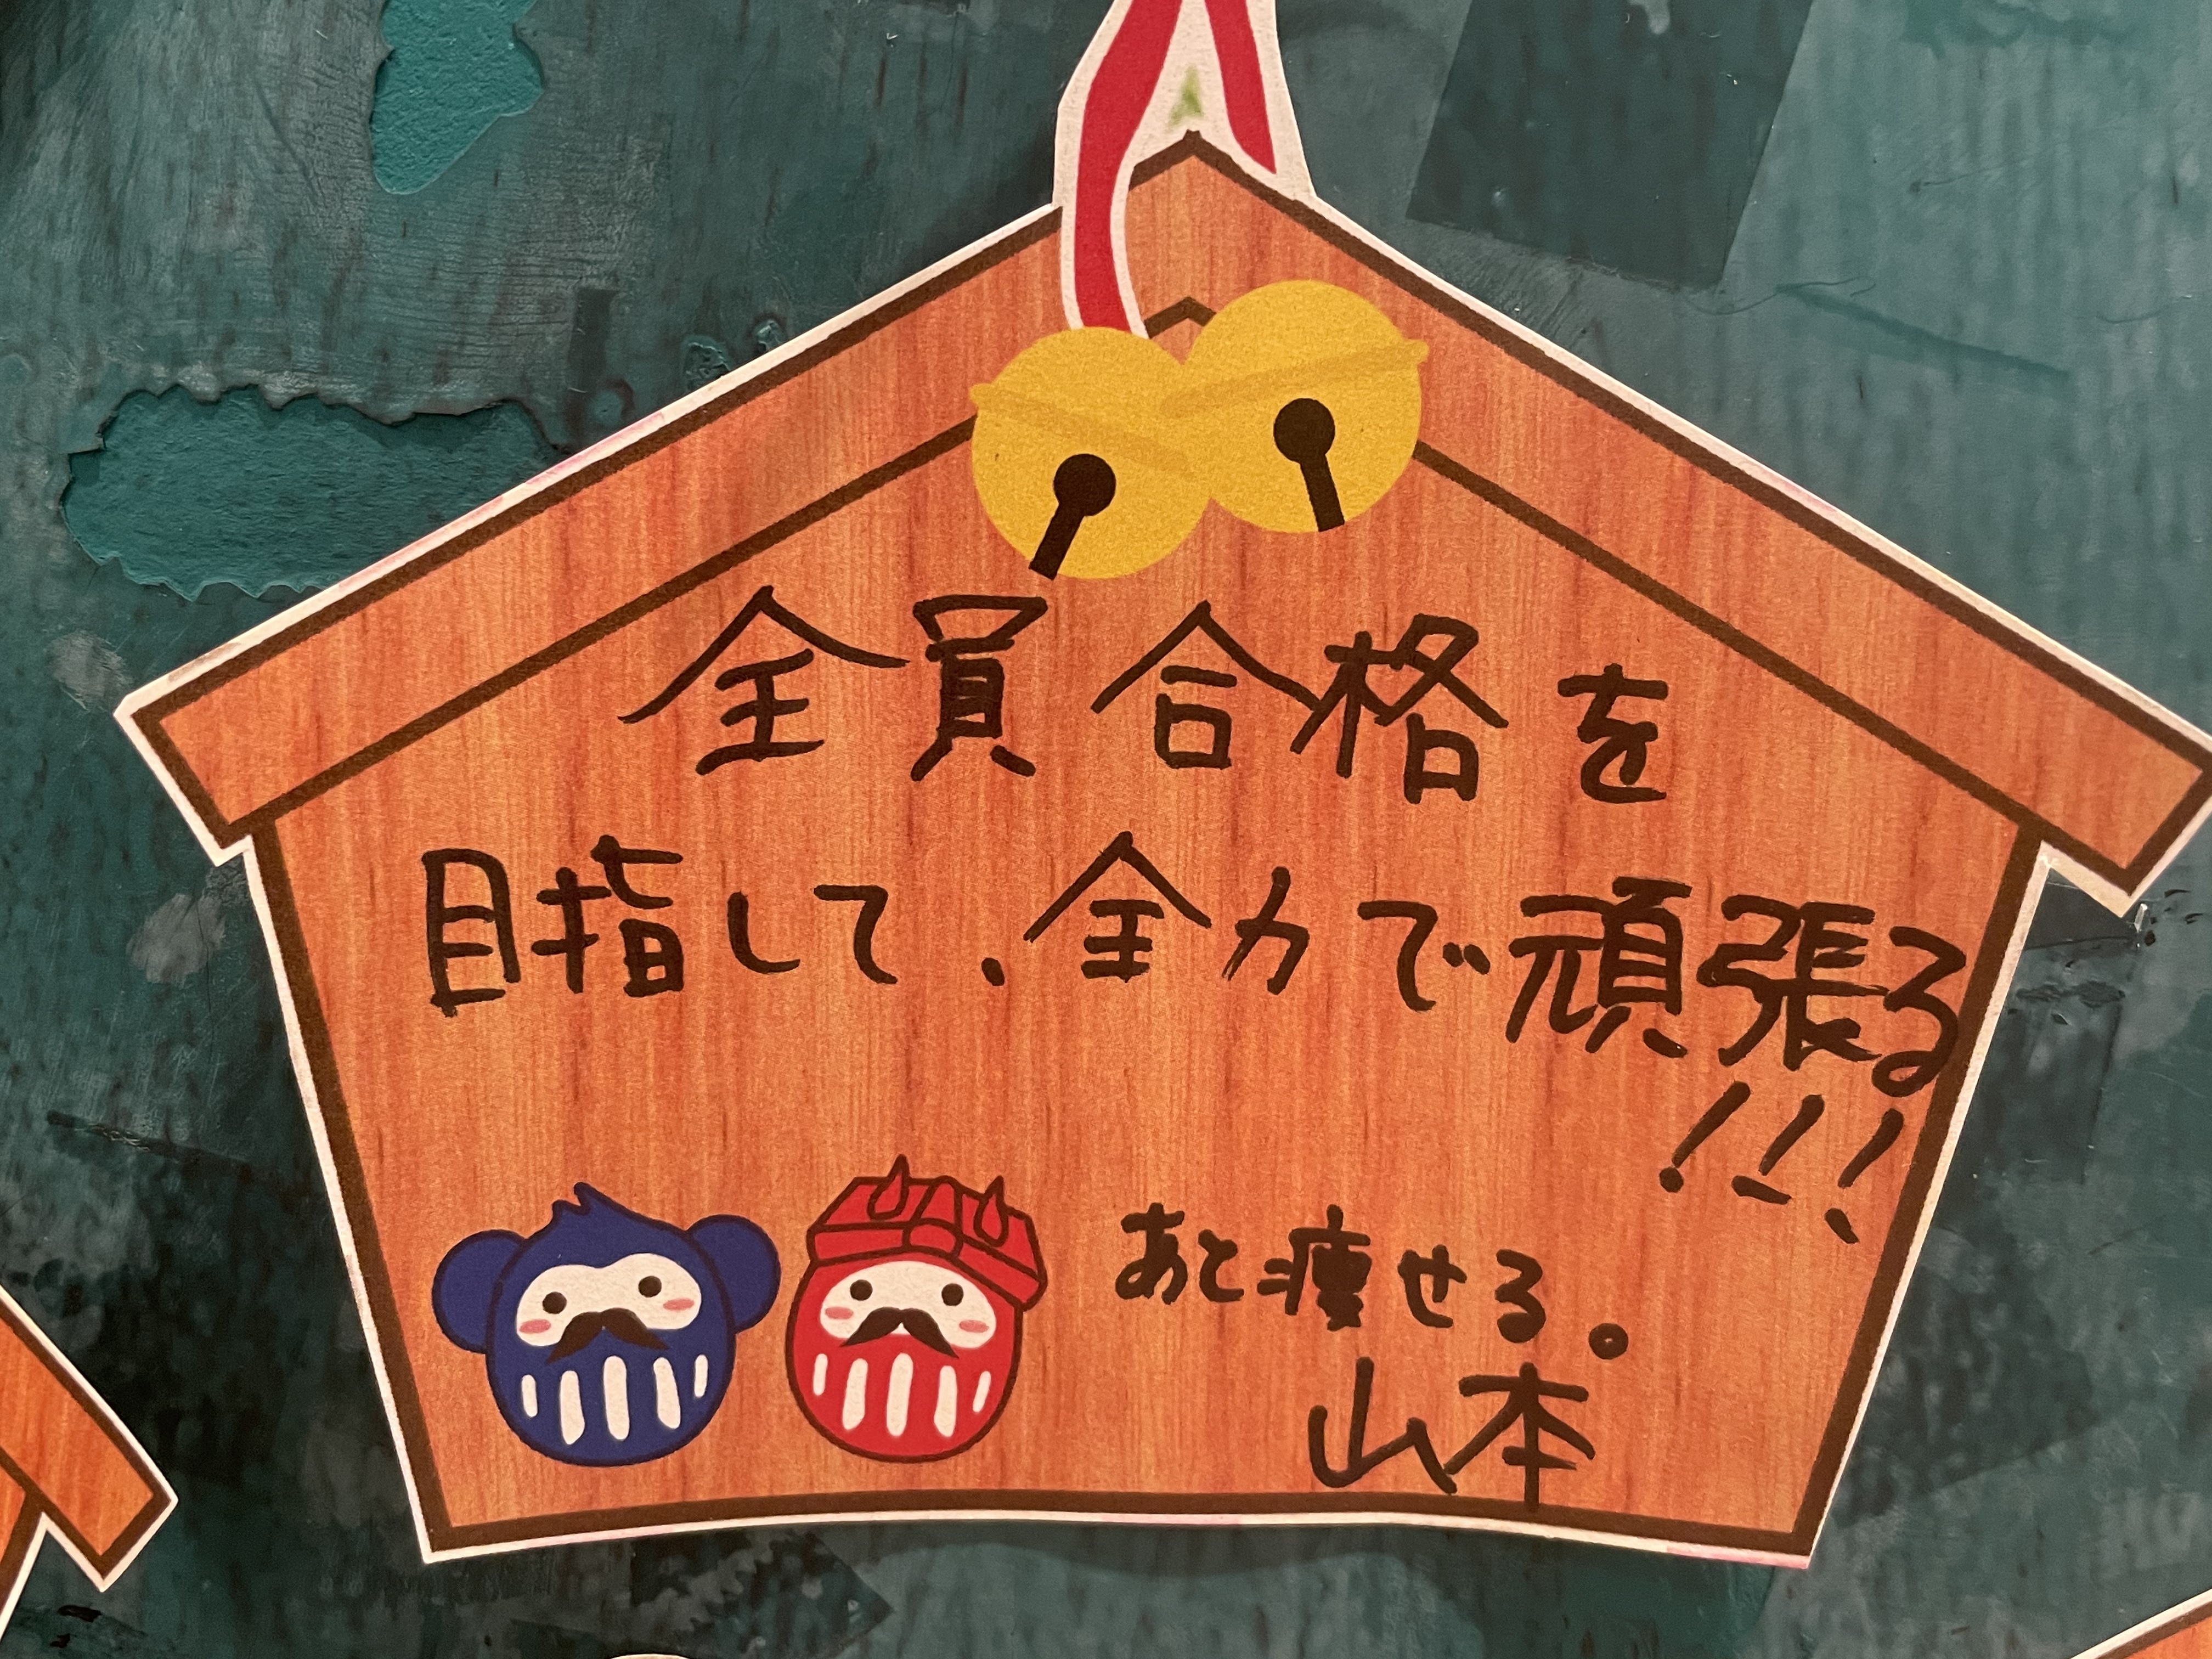 全員合格を
目指して、全力で頑張る
!!!
あと痩せる。
山本